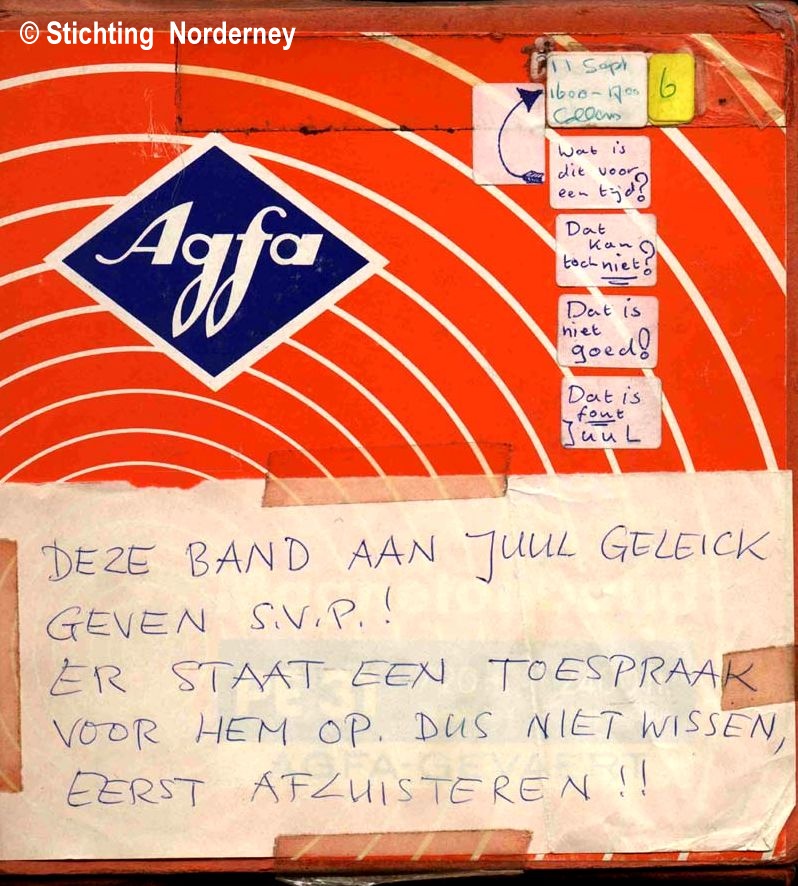 © Stichting Norderney
11 Sept
1600-1700
6
Wat is
dit voor
een tijd?
Dat
kan
toch niet?
Dat is
niet
goed!
Dat is
fout
Juul
Agfa
DEZE BAND AAN JUUL GELEICK
GEVEN S.V.P.!
ER STAAT EEN TOESPRAAK
VOOR HEM OP. DUS NIET WISSEN,
EERST AFLUISTEREN!!
AGFA-GEVAERT